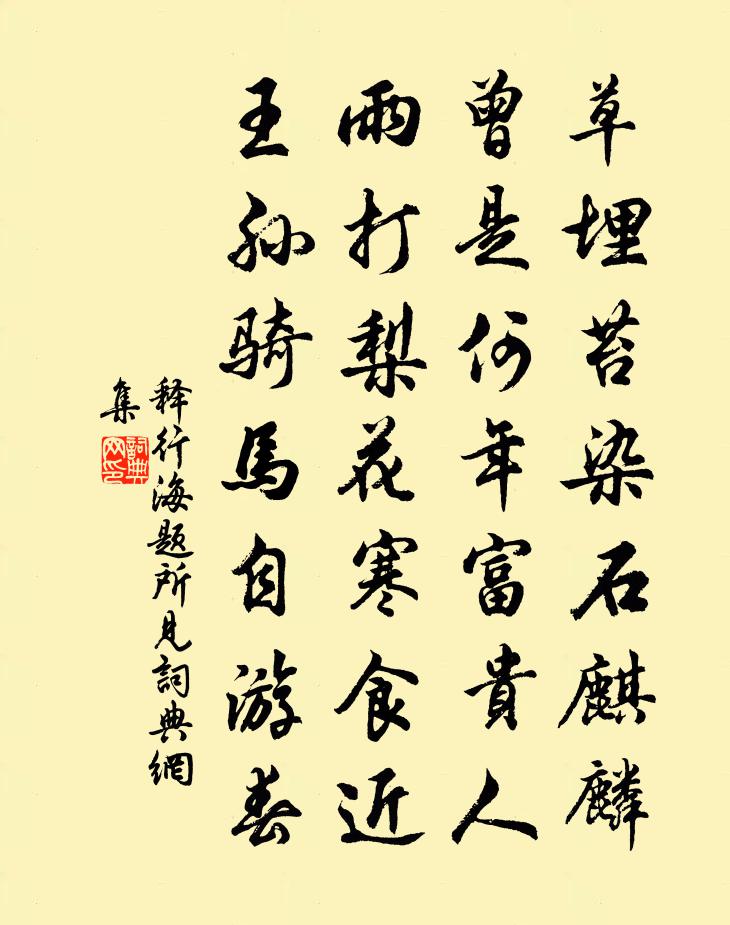 草埋苔染石麒麟
曾是何年富貴人
雨打梨花寒食近
王孙騎馬自游春
释行海题所见詞典網
集
詞典
网印